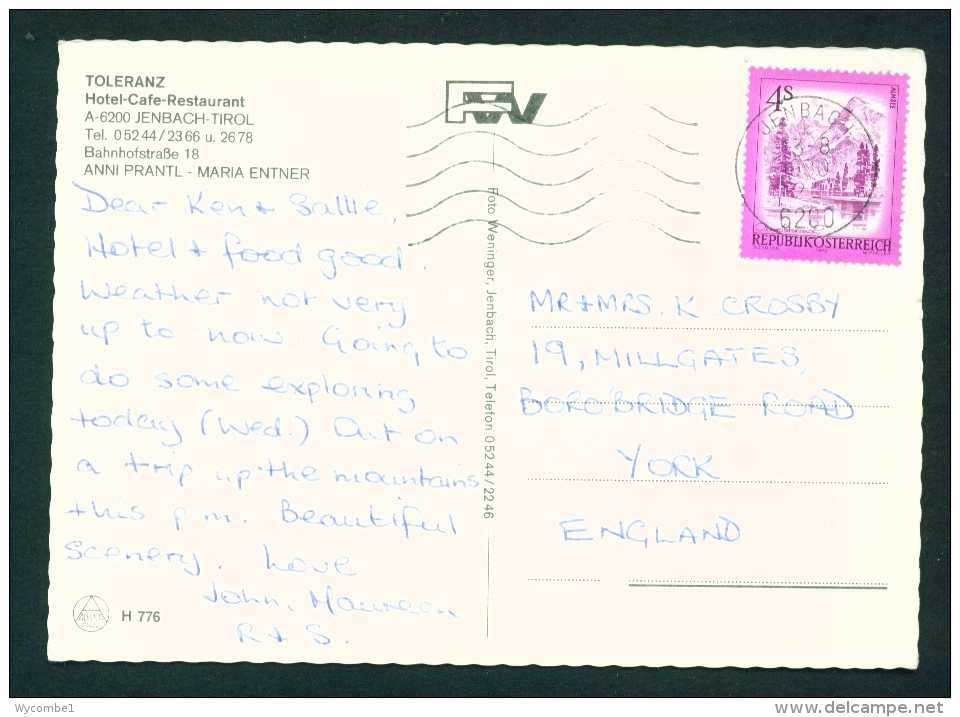 TOLERANZ
Hotel-Cafe-Restaurant
A-6200 JENBACH-TIROL
Tel. 05244/2366 u. 2678
Bahnhofstraße 18
ANNI PRANTL - MARIA ENTNER
Dear Ken + Sallie,
Hotel + food good.
Weather not very
up to now. Going to
do some exploring
today (Wed.) Out on
a trip up the mountains
this p.m. Beautiful
scenery. Love
John, Maureen
R + S.
H 776
Foto Weninger, Jenbach, Tirol, Telefon 05244/2246
4s
ALMSEE
REPUBLIK ÖSTERREICH
JENBACH
6200
MR + MRS. K CROSBY
19, MILLGATES,
BORO'BRIDGE ROAD
YORK
ENGLAND
Wycombe1
www.delcampe.net